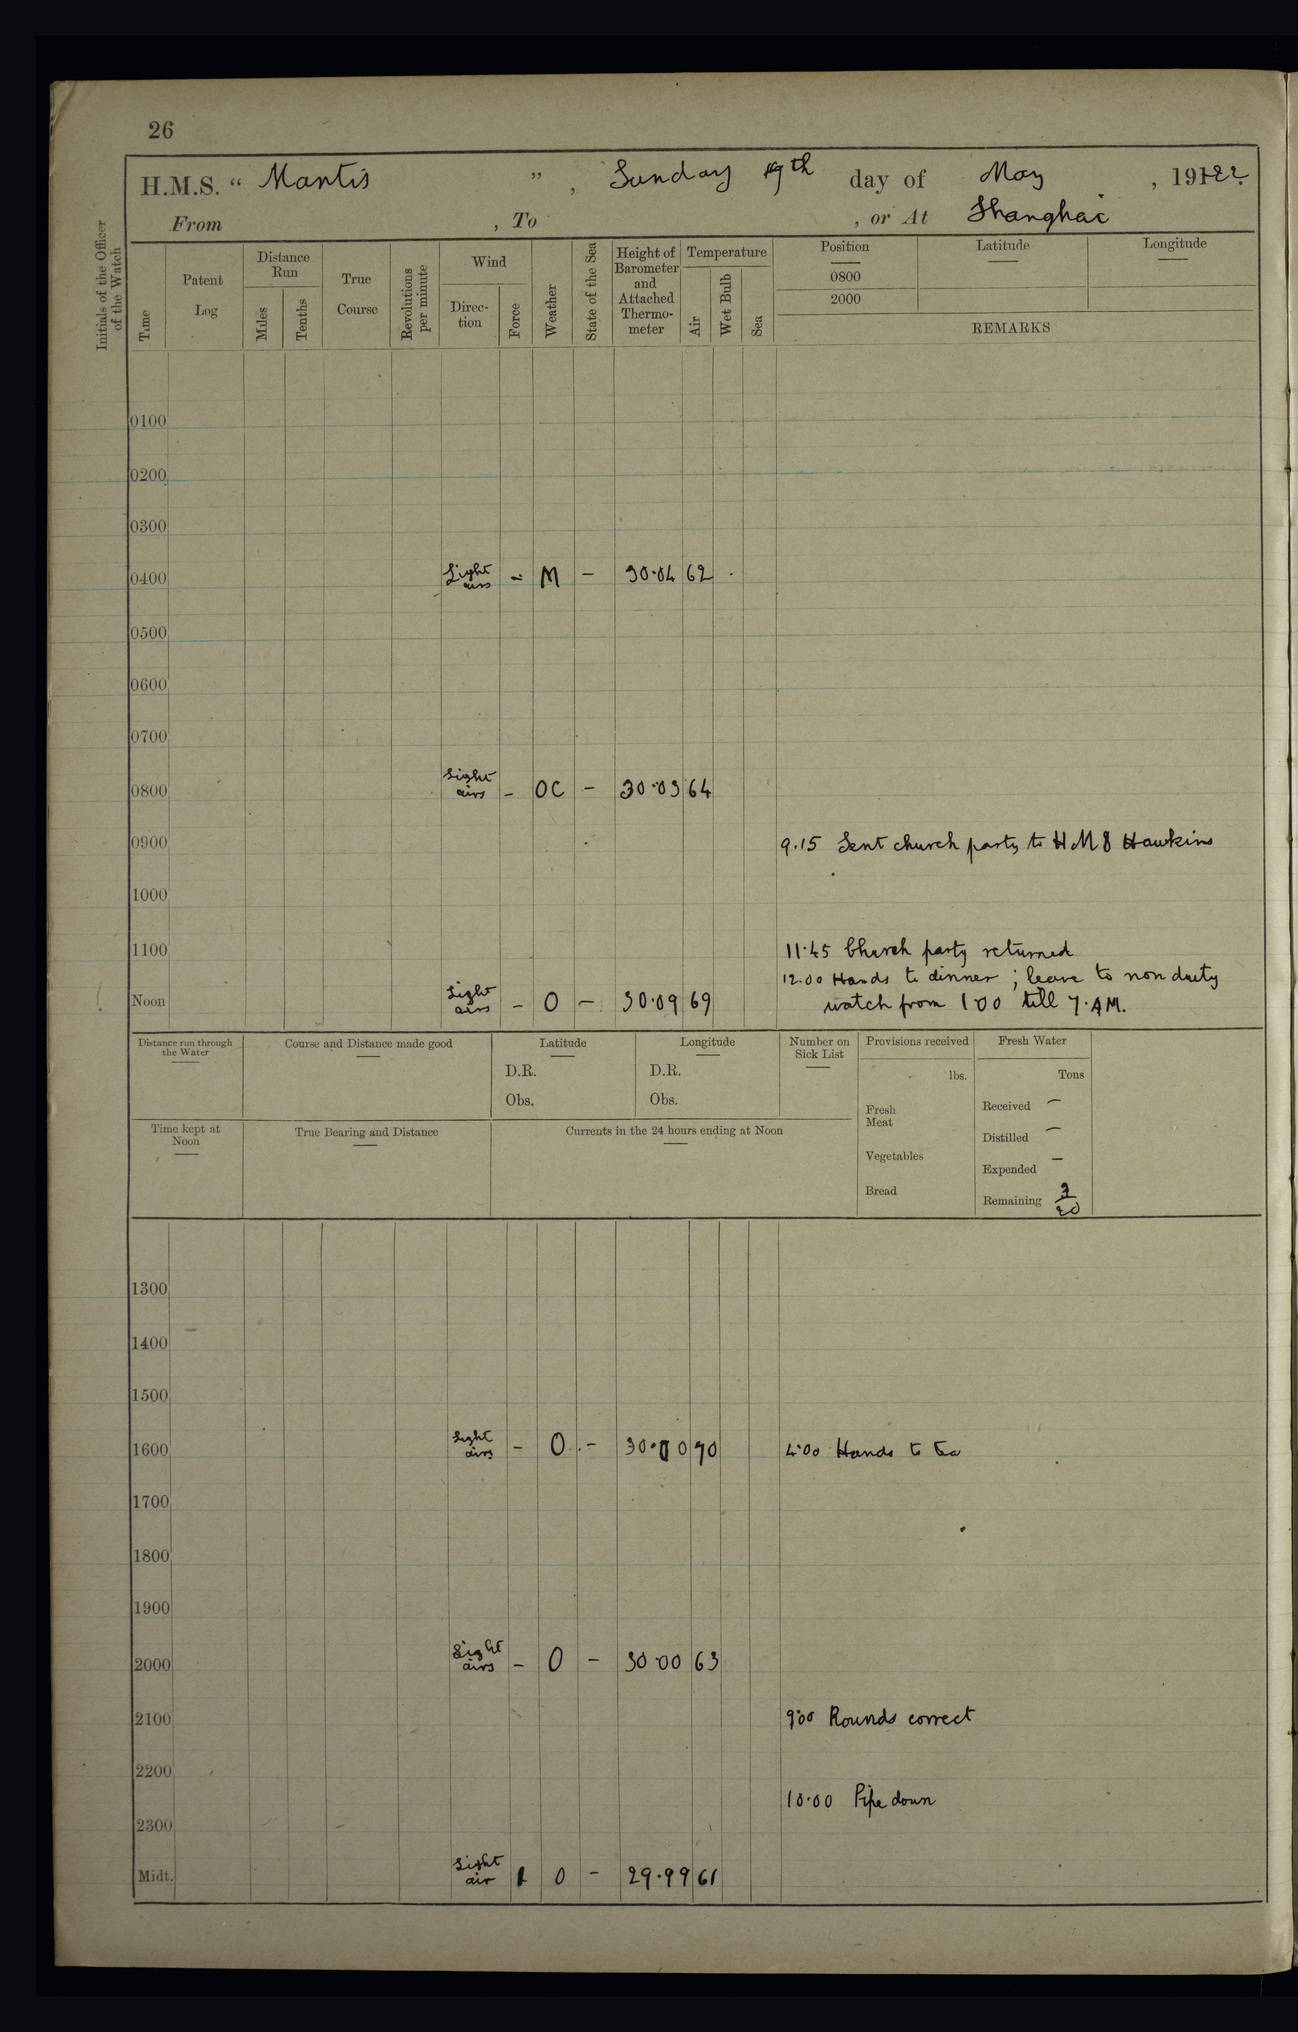 26
H.M.S. " Mantis ", Sunday th day of May , 1922.
From , To , or At Shanghai
Initials of the Officer of the Watch
Time
Patent Log
Distance Run
Miles
Tenths
True Course
Revolutions per minute
Wind
Direc-tion
Force
Weather
State of the Sea
Height of Barometer and Attached Thermo-meter
Temperature
Air
Wet Bulb
Sea
Position
0800
2000
Latitude
Longitude
REMARKS
0100
0200
0300
0400 Light airs - M - 30.04 62
0500
0600
0700
0800 Light airs - OC - 30.03 64
0900 9.15 Sent church party to H M S Hawkins
1000
1100 11.45 Church party returned
12.00 Hands to dinner ; leave to non duty
Noon Light airs - O - 30.09 69 watch from 1.00 till 7. AM.
Distance run through the Water
Course and Distance made good
Latitude
D.R.
Obs.
Longitude
D.R.
Obs.
Number on Sick List
Provisions received
lbs.
Fresh Meat
Vegetables
Bread
Fresh Water
Tons
Received -
Distilled -
Expended -
Remaining
Time kept at Noon
True Bearing and Distance
Currents in the 24 hours ending at Noon
1300
1400
1500
1600 Light airs - O - 30.00 70 4.00 Hands to tea
1700
1800
1900
2000 Light airs - O - 30.00 63
2100 9.00 Rounds correct
2200
10.00 Pipe down
2300
Midt. Light air 1 O - 29.99 61